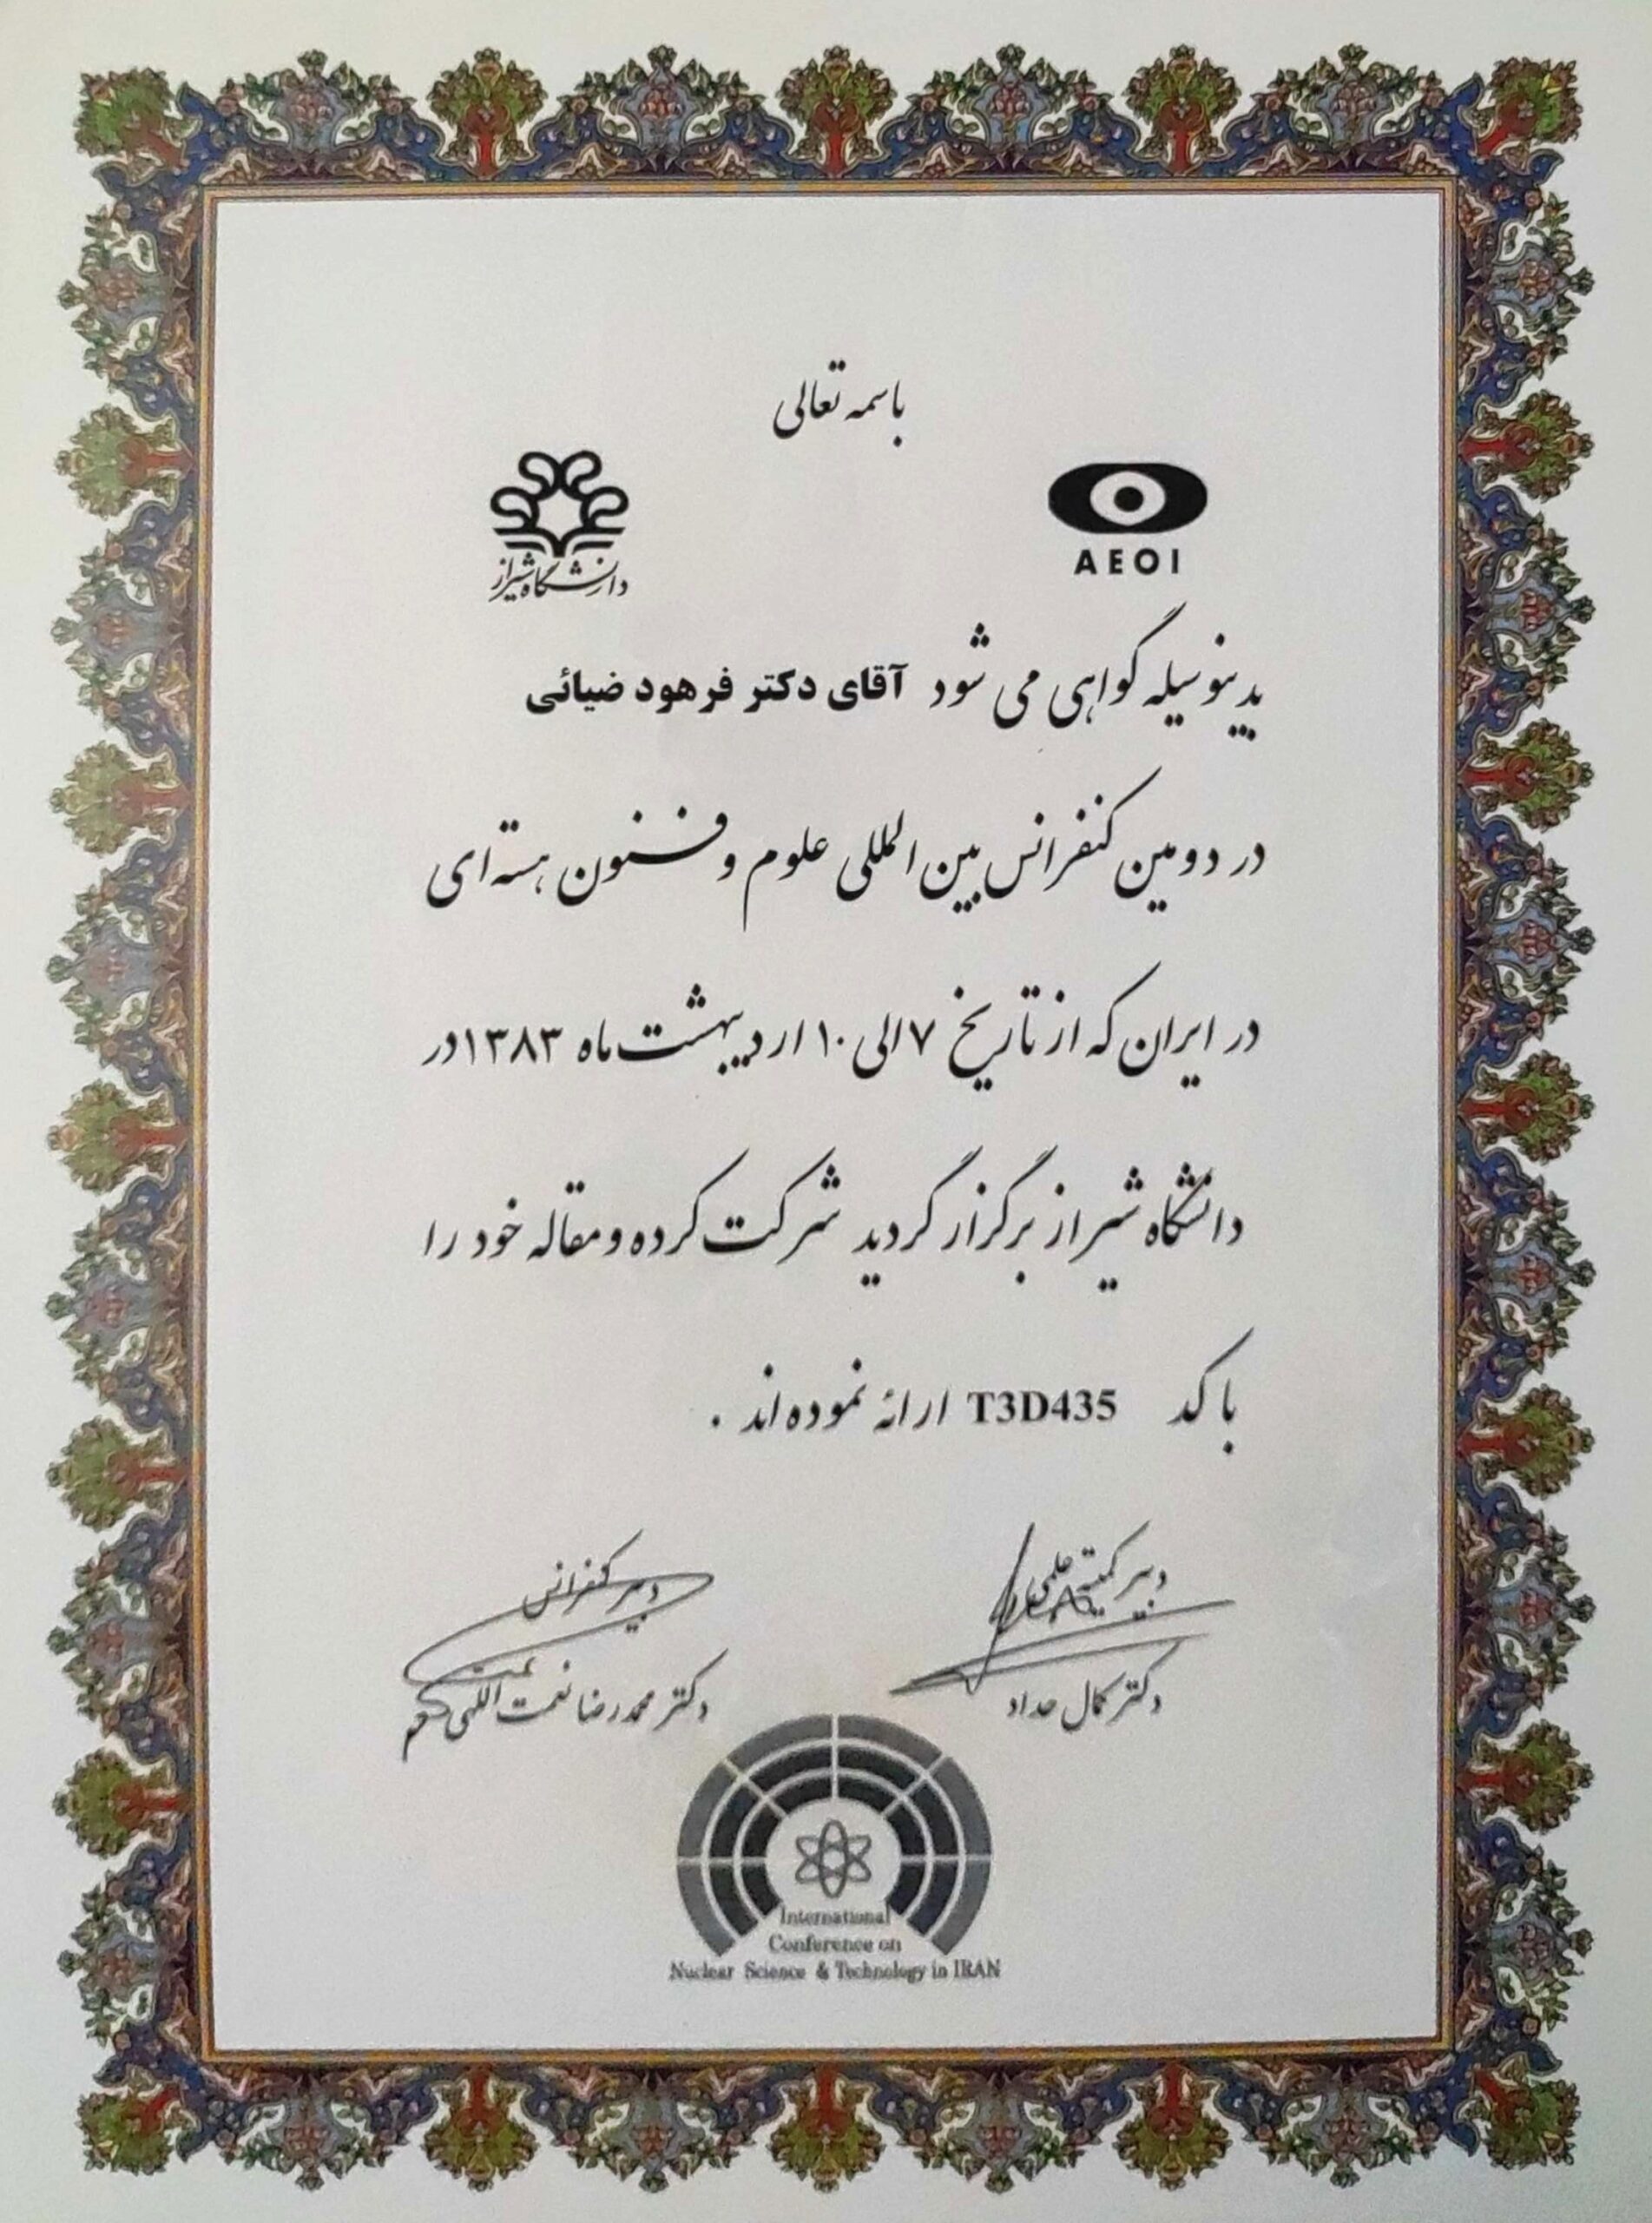 باسمه تعالی
AEOI
دانشگاه شیراز
بدینوسیله گواهی می شود آقای دکتر فرهود ضیائی
در دومین کنفرانس بین المللی علوم و فنون هسته ای
در ایران که از تاریخ ۷ الی ۱۰ اردیبهشت ماه ۱۳۸۳ در
دانشگاه شیراز برگزار گردید شرکت کرده و مقاله خود را
با کد T3D435 ارائه نموده اند .
دبیر کمیته علمی
دکتر کمال حداد
دبیر کنفرانس
دکتر محمدرضا نعمت اللهی
International
Conference on
Nuclear Science & Technology in IRAN